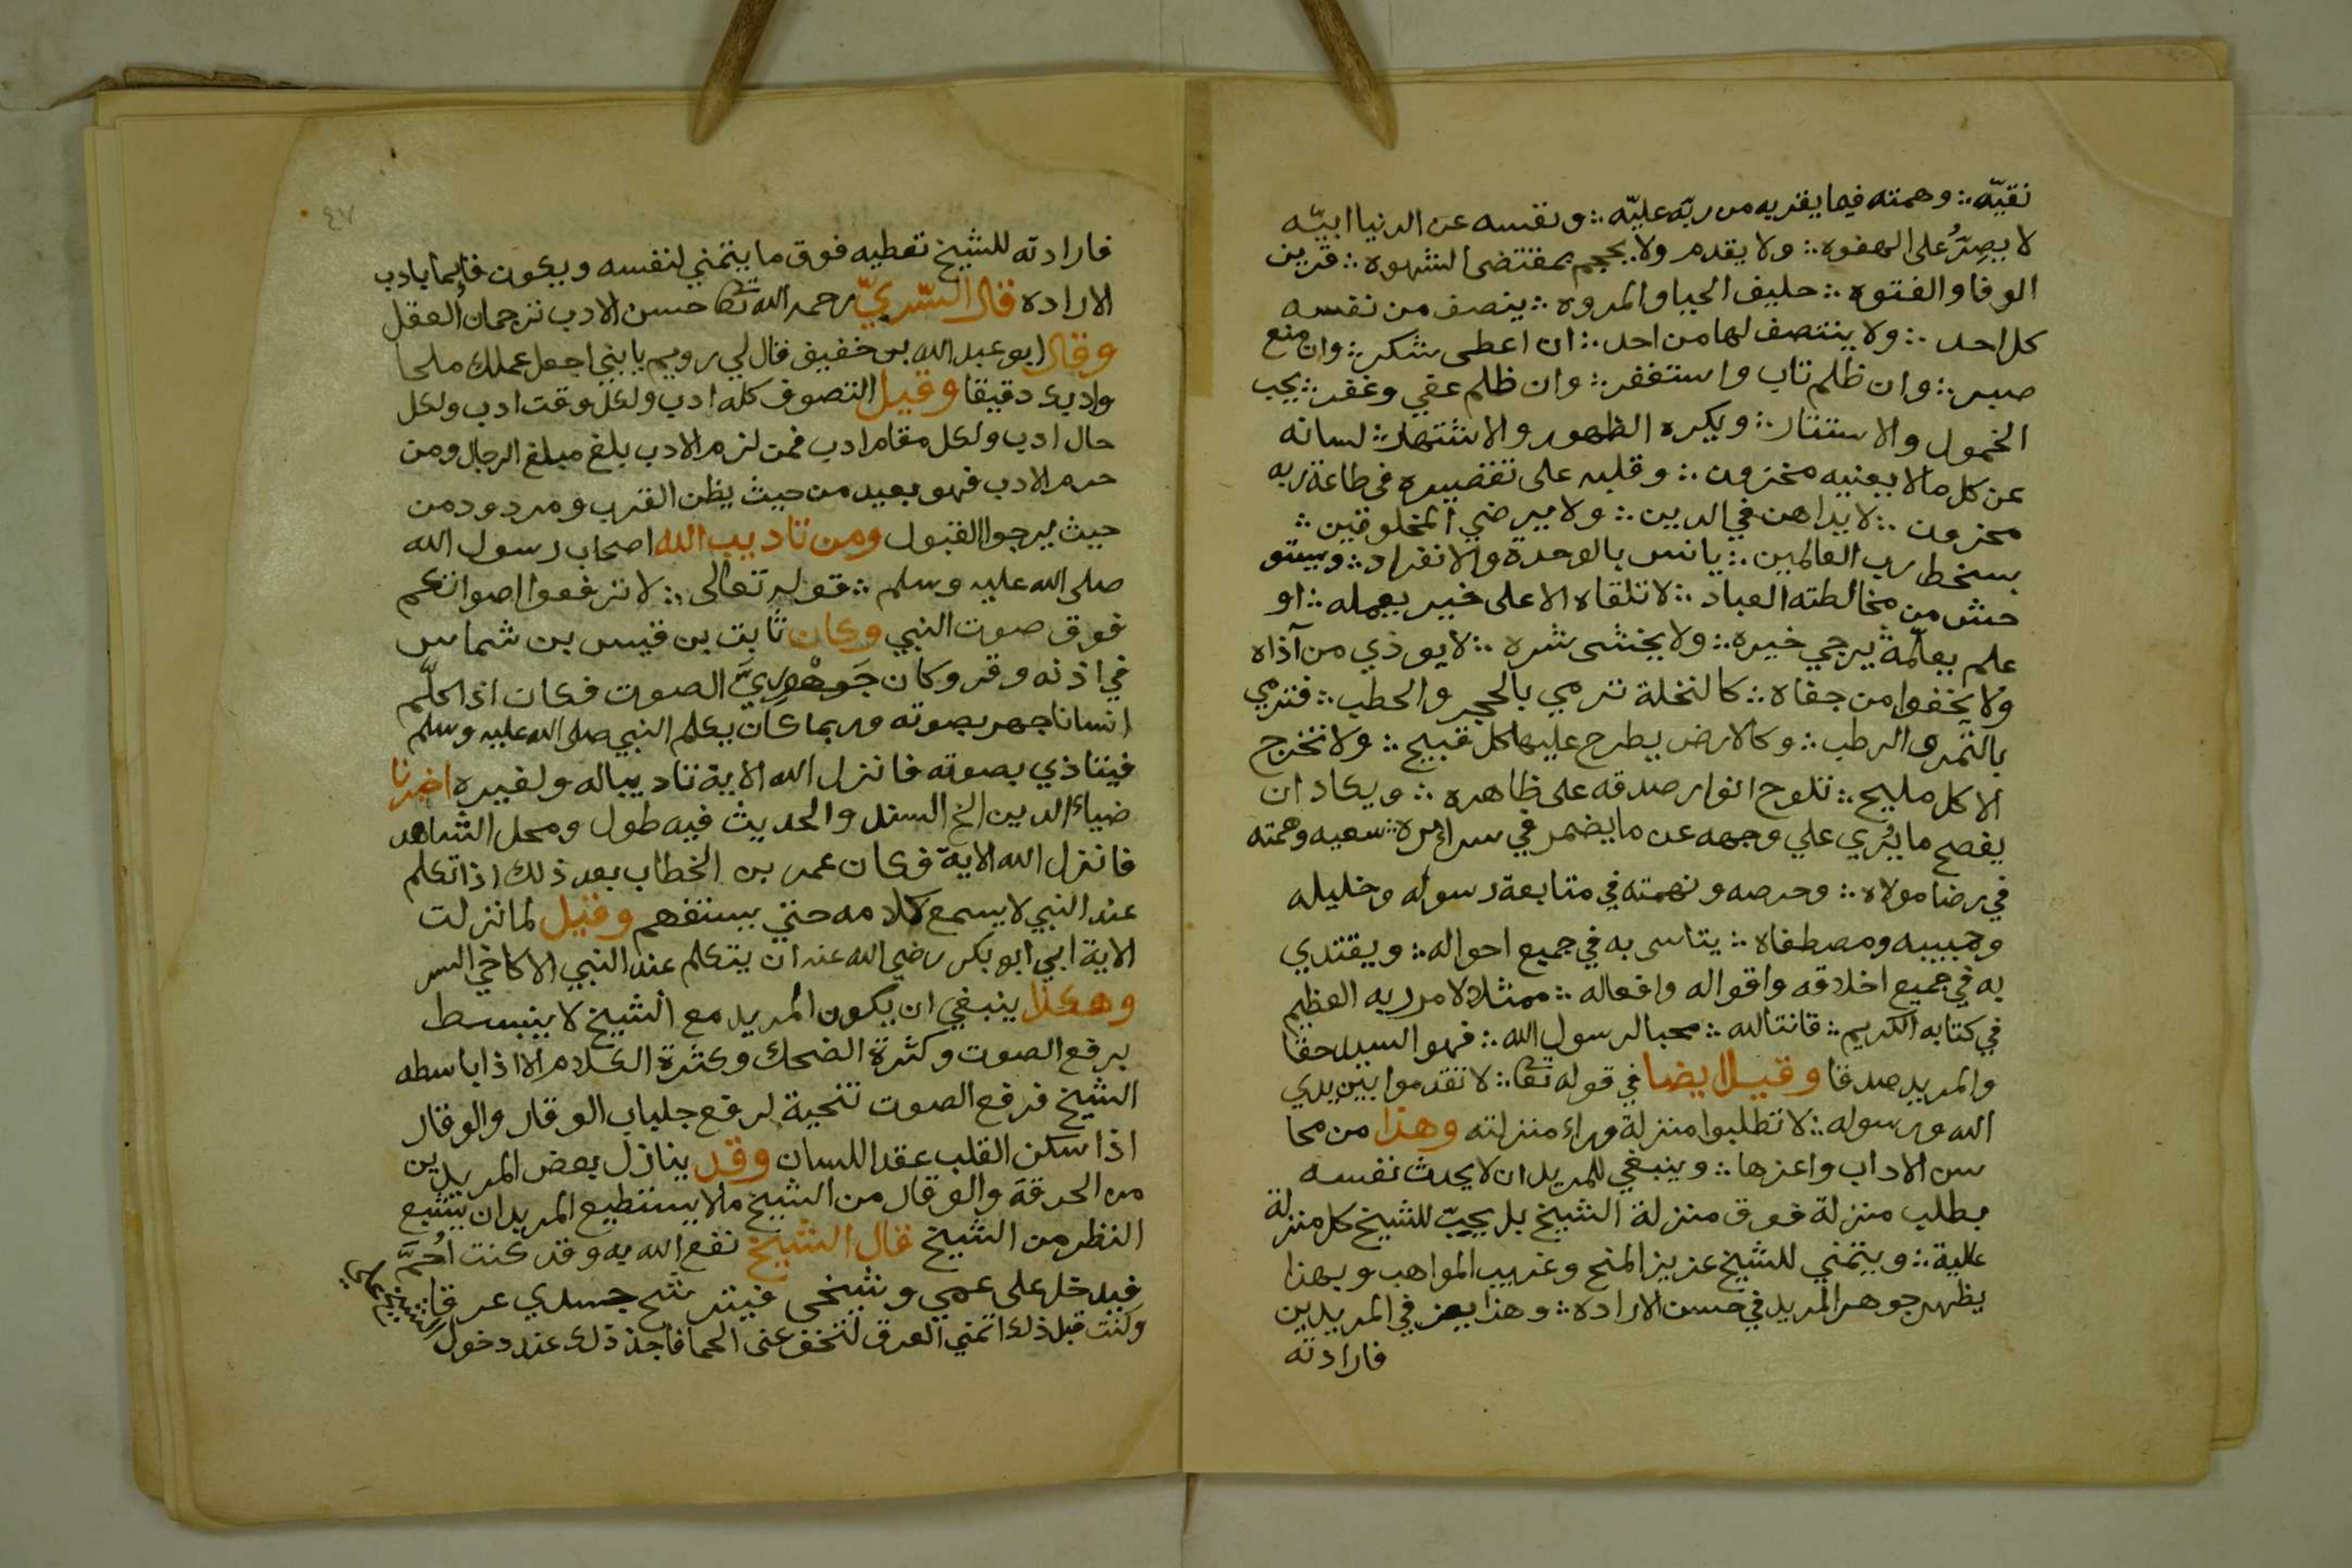 نقيّه ؞ وهمته فيما يقربه من ربّه عليّه ؞ ونفسه عن الدنيا ابيّه
لا يصِرُّ على الهفوه ؞ ولا يقدم ولا يحجم بمقتضى الشهوه ؞ قرين
الوفا والفتوه ؞ حليف الحيا والمروه ؞ ينصف من نفسه
كل احد ؞ ولا ينتصف لها من احد ؞ ان اعطى شكر ؞ وان منع
صبر ؞ وان ظلم تاب واستغفر ؞ وان ظلم عفى وغفر ؞ يحب
الخمول والاستتار ؞ ويكره الظهور والاشتهار ؞ لسانه
عن كل ما لا يعنيه مخزون ؞ وقلبه على تقصيره في طاعة ربه
محزون ؞ لا يداهن في الدين ؞ ولا يرضي المخلوقين ؞
بسخط رب العالمين ؞ يانس بالوحدة والانفراد ؞ ويستو
حش من مخالطته العباد ؞ لا تلقاه الا على خير يعمله ؞ او
علم يعلّمه يرجي خيره ؞ ولا يخشى شره ؞ لا يوذي من آذاه
ولا يجفوا من جفاه ؞ كالنخلة ترمي بالحجر والحطب ؞ فترمي
بالتمر والرطب ؞ وكالارض يطرح عليها كل قبيح ؞ ولا تخرج
الا كل مليح ؞ تلوح انوار صدقه على ظاهره ؞ ويكاد ان
يفصح ما يُري علي وجهه عن ما يضمر في سرائره ؞ سعيه وهمته
في رضا مولاه ؞ وحرصه ونهمته في متابعة رسوله وخليله
وحبيبه ومصطفاه ؞ يتاسى به في جميع احواله ؞ ويقتدي
به في جميع اخلاقه واقواله وافعاله ؞ ممتثلا لامر ربه العظيم
في كتابه الكريم ؞ قانتا لله ؞ محبا لرسول الله ؞ فهو السيد حقا
والمريد صدقا وقيل ايضا في قوله تعا ؞ لا تقدموا بين يدي
الله ورسوله ؞ لا تطلبوا منزلة وراء منزلته وهذا من محا
سن الاداب واعزها ؞ وينبغي للمريد ان لا يحدث نفسه
بطلب منزلة فوق منزلة الشيخ بل يحبّ للشيخ كل منزلة
علية ؞ ويتمني للشيخ عزيز المنح وغريب المواهب وبهذا
يظهر جوهر المريد في حسن الاراده ؞ وهذا يعز في المريدين
فارادته
٤٧
فارادته للشيخ تعطيه فوق ما يتمني لنفسه ويكون قايما بادب
الاراده قال السّريّ رحمه الله تعا حسن الادب ترجمان العقل
وقال ابو عبد الله بن خفيق قال لي رويم يا بني اجعل عملك ملحا
وادبك دقيقا وقيل التصوف كله ادب ولكل وقت ادب ولكل
حال ادب ولكل مقام ادب فمن لزم الادب بلغ مبلغ الرجال ومن
حرم الادب فهو بعيد من حيث يظن القرب ومردود من
حيث يرجوا القبول ومن تاديب الله اصحاب رسول الله
صلى الله عليه وسلم ؞ قوله تعالى ؞ لا ترفعوا اصواتكم
فوق صوت النبي وكان ثابت بن قيس بن شماس
في اذنه وقر وكان جَوهْوريَّ الصوت فكان اذا كلّم
انسانا جهر بصوته وربما كان يكلم النبي صلى الله عليه وسلم
فيتاذي بصوته فانزل الله الاية تاديبا له ولغيره اخبرنا
ضياء الدين الخ السند والحديث فيه طول ومحل الشاهد
فانزل الله الاية فكان عمر بن الخطاب بعد ذلك اذا تكلم
عند النبي لا يسمع كلامه حتي يستفهم وقيل لما نزلت
الاية ابي ابو بكر رضي الله عنه ان يتكلم عند النبي الا كاخي السر
وهكذا ينبغي ان يكون المريد مع الشيخ لا ينبسط
برفع الصوت وكثرة الضحك وكثرة الكلام الا اذا باسطه
الشيخ فرفع الصوت تنحية لرفع جلباب الوقار والوقار
اذا سكن القلب عقد اللسان وقد ينازل بعض المريدين
من الحرقة والوقار من الشيخ ما لا يستطيع المريد ان يشبع
النظر من الشيخ قال الشيخ نفع الله به وقد كنت احُمَّ
فيدخل على عمي وشيخى فيترشح جسدي عرقا
وكنت قبل ذلك اتمني العرق لتخف عنى الحما فاجد ذلك عند دخول
الشيخ علي